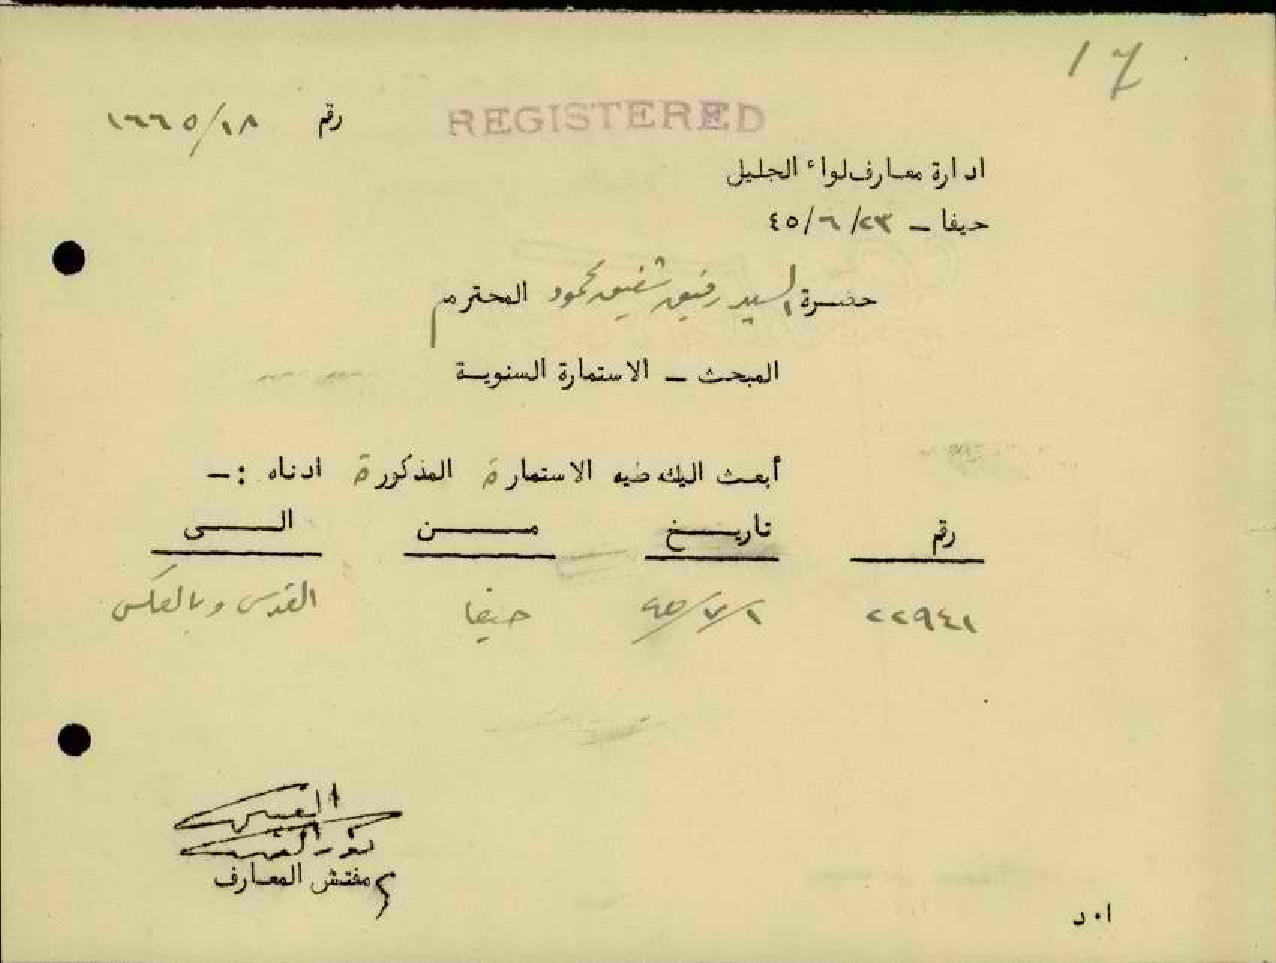 ١٦
رقم ١٦٦٥/١٨
REGISTERED
ادارة معارف لواء الجليل
حيفا - ٤٥/٦/٢٣
حضرة السيد رفيق شفيق محمود المحترم
المبحث - الاستمارة السنوية
أبعث اليك طيه الاستمارة المذكورة ادناه :-
رقم تاريخ من الى
٢٢٩٤١ ٤٥/٧/١ حيفا القدس وبالعكس
مفتش المعارف
ا٠د